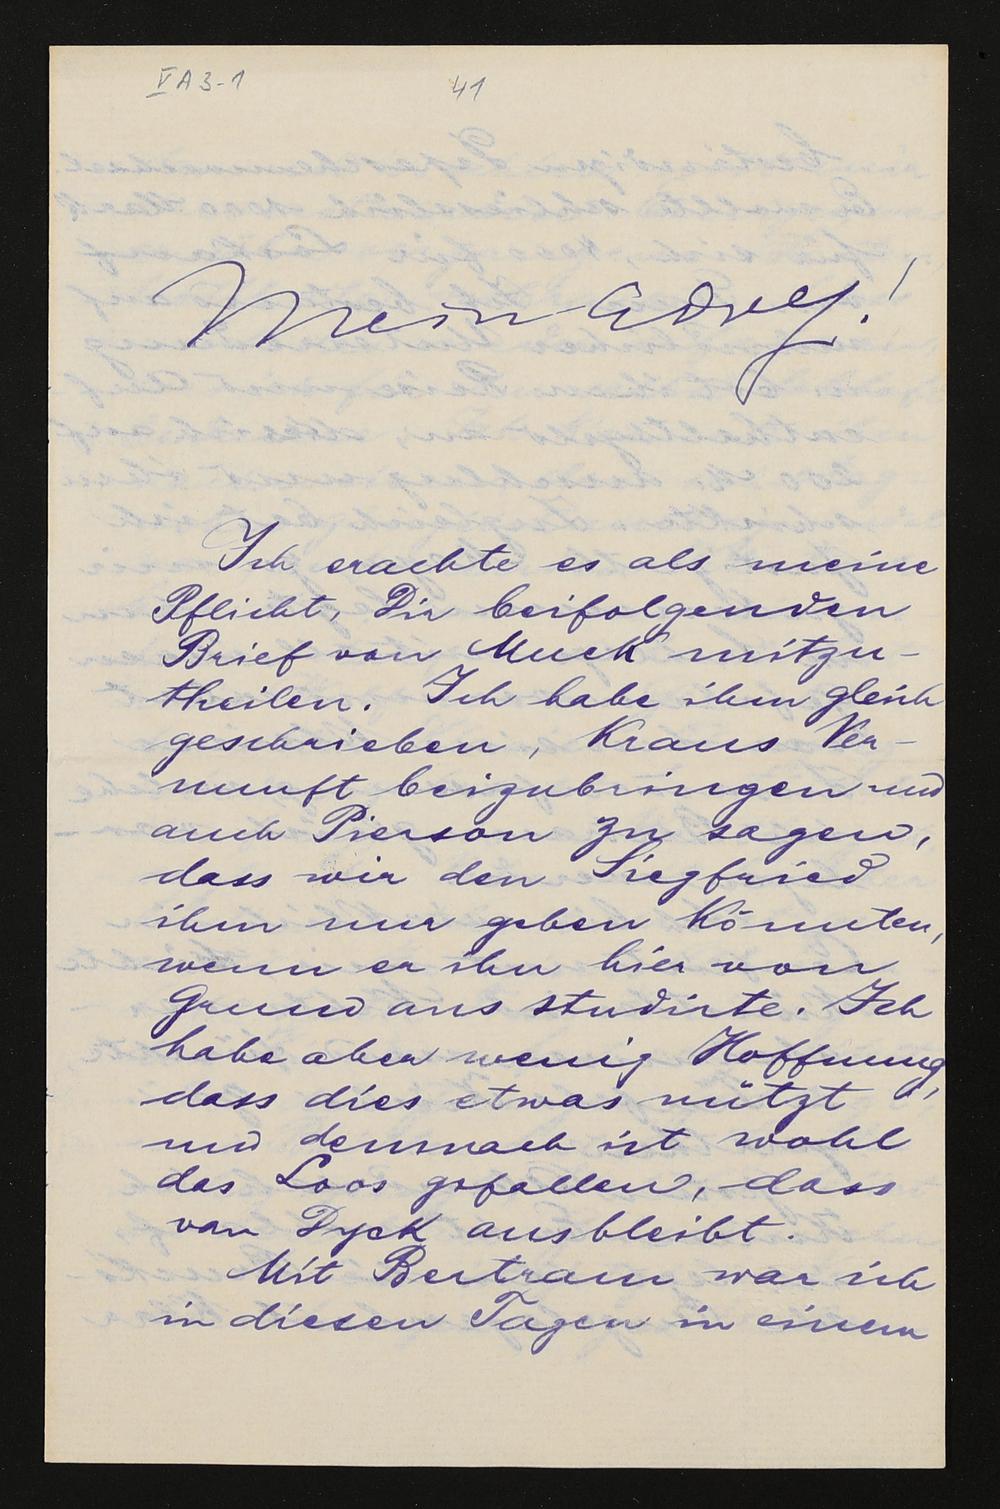 V A 3-1 41
Mein Adolf!
Ich erachte es als meine
Pflicht, Dir beifolgenden
Brief von Muck mitzu-
theilen. Ich habe ihm gleich
geschrieben, Kraus Ver-
nunft beizubringen und
auch Pierson zu sagen,
dass wir den Siegfried
ihm nur geben könnten,
wenn er ihn hier von
Grund aus studirte. Ich
habe aber wenig Hoffnung,
dass dies etwas nützt
und demnach ist wohl
das Loos gefallen, dass
van Dyck ausbleibt.
Mit Bertram war ich
in diesen Tagen in einem